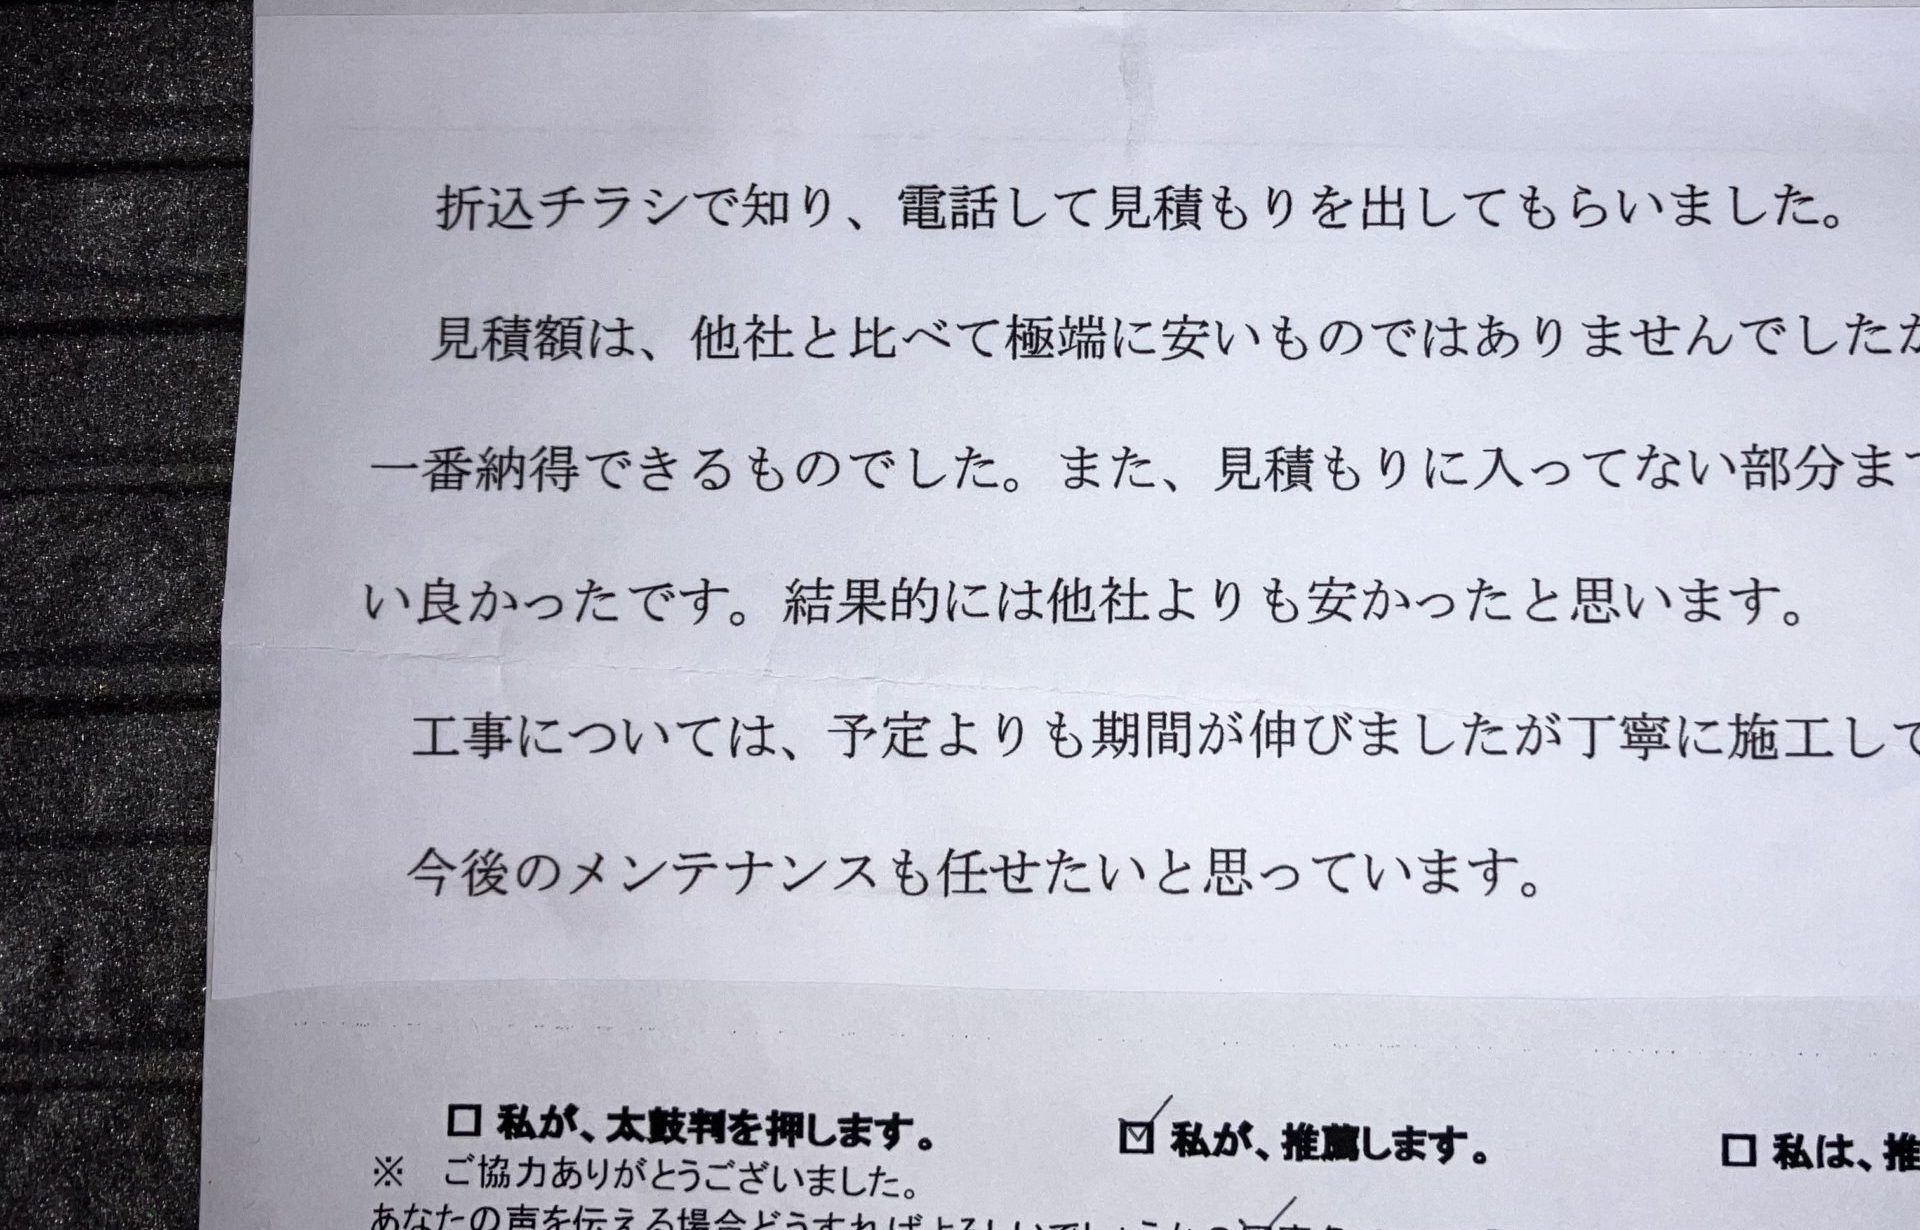 折込チラシで知り、電話して見積もりを出してもらいました。
見積額は、他社と比べて極端に安いものではありませんでしたが
一番納得できるものでした。また、見積もりに入ってない部分まで
い良かったです。結果的には他社よりも安かったと思います。
工事については、予定よりも期間が伸びましたが丁寧に施工して
今後のメンテナンスも任せたいと思っています。
□ 私が、太鼓判を押します。 ☑ 私が、推薦します。 □ 私は、推
※ ご協力ありがとうございました。
あなたの声を伝える場合どうすればよろしいでしょうか